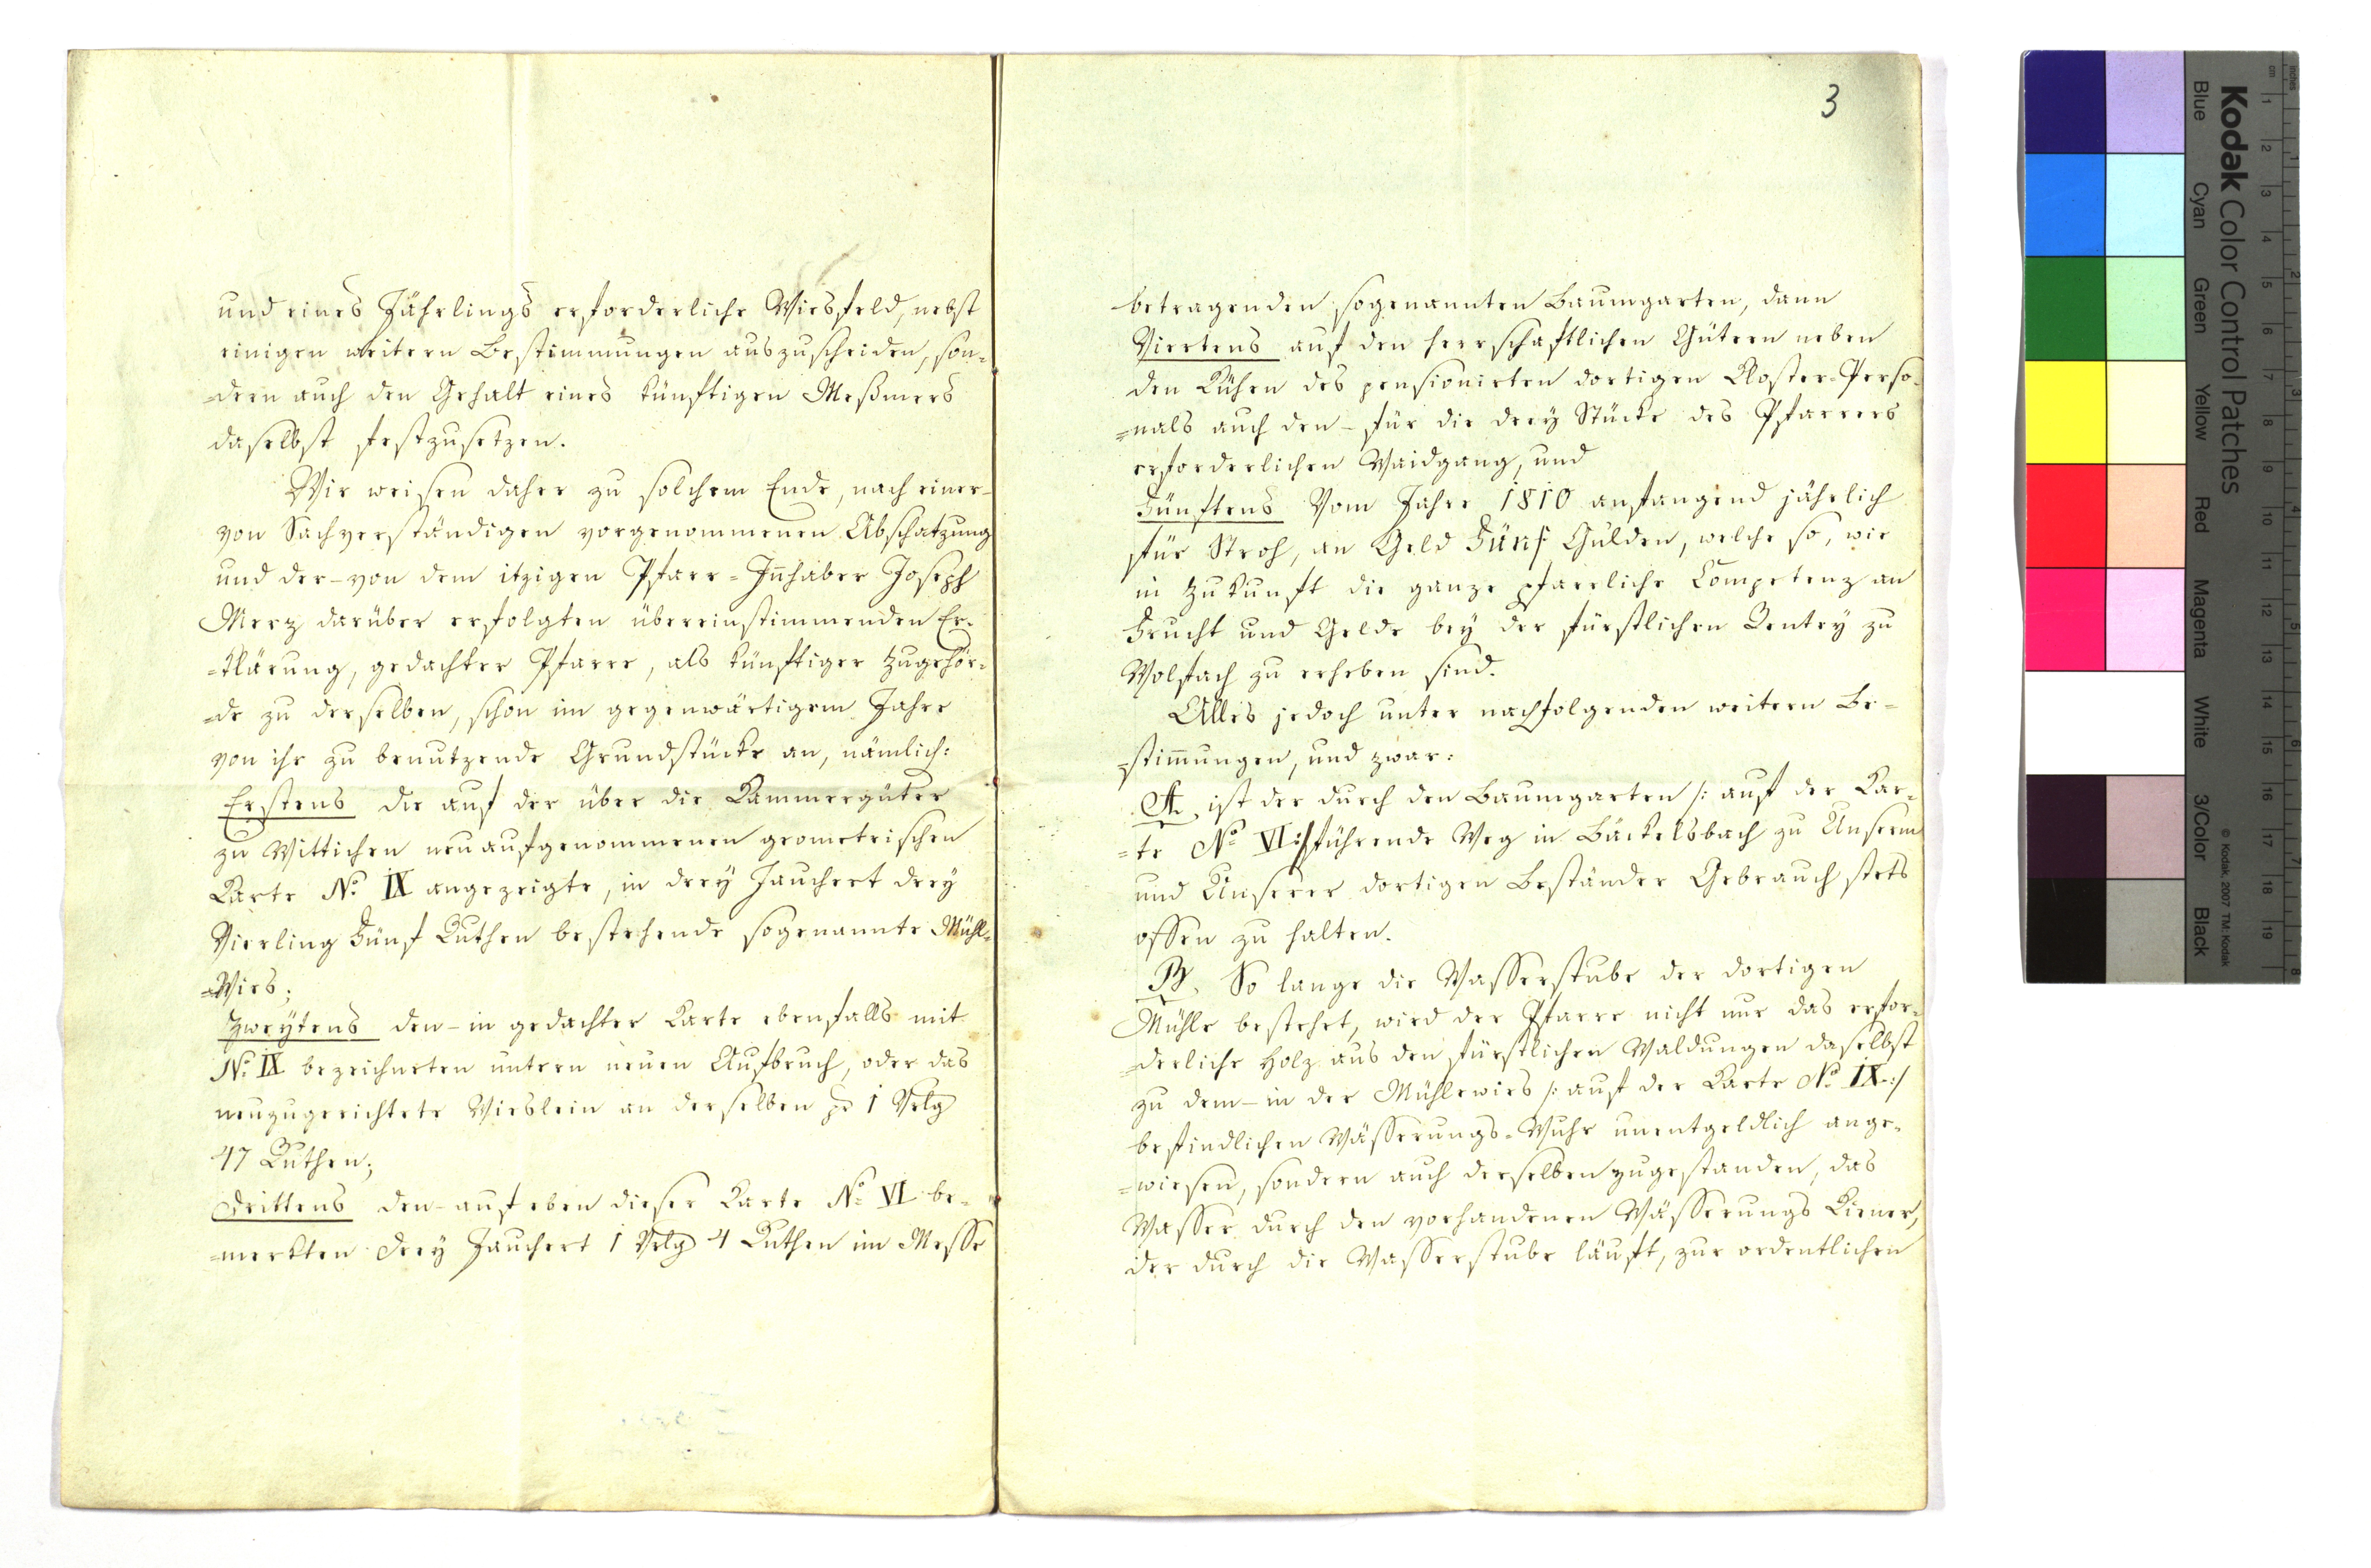 und eines Jährlings erforderliche Wiesfeld, nebst
einigen weitern Bestimmungen auszuscheiden, son-
=dern auch den Gehalt eines künftigen Meßmers
daselbst festzusetzen.
Wir weisen daher zu solchem Ende, nach einer-
von Sachverständigen vorgenommenen Abschatzung
und der-von dem itzigen Pfarr=Innhaber Joseph
Merz darüber erfolgten übereinstimmenden Er-
=klärung, gedachter Pfarre, als künftiger Zugehör-
=de zu derselben, schon im gegenwärtigem Jahre
von ihr zu benutzende Grundstücke an, nämlich:
Erstens die auf der über die Kammergüter
zu Wittichen neuaufgenommenen geometrischen
Karte No. IX angezeigte, in drey Jauchert drey
Vierling Fünf Ruthen bestehende sogenannte Mühl-
=Wies;
Zweytens den-in gedachter Karte ebenfalls mit
No. IX bezeichneten untern neuen Aufbruch, oder das
neuzugerichtete Wieslein an derselben pr 1 Vrlg
47 Ruthen;
Drittens den-auf eben dieser Karte No. VI be-
=merkten drey Jauchert 1 Vrlg 4 Ruthen im Messe
3
betragenden sogenannten Baumgarten, dann
Viertens auf den herrschaftlichen Gütern neben
den Kühen des pensionirten dortigen Kloster=Perso-
=nals auch den-für die drey Stücke des Pfarrers
erforderlichen Waidgang, und
Fünftens Vom Jahre 1810 anfangend jährlich
für Stroh, an Geld Fünf Gulden, welche so, wie
in Zukunft die ganze pfarrliche Competenz an
Frucht und Gelde bey der fürstlichen Rentey zu
Wolfach zu erheben sind.
Alles jedoch unter nachfolgenden weitern Be-
=stimmungen, und zwar:
A. ist der durch den Baumgarten /: auf der Kar-
=te No. VI :/ führende Weg in Bäckelsbach zu Unserm
und Unserer dortigen Beständer Gebrauch stets
offen zu halten.
B. So lange die Wasserstube der dortigen
Mühle bestehet, wird der Pfarre nicht nur das erfor-
=derliche Holz aus den fürstlichen Waldungen daselbst
zu dem-in der Mühlewies /: auf der Karte No. IX :/
befindlichen Wässerungs-Wuhr unentgeldlich ange-
=wiesen, sondern auch derselben zugestanden, das
Wasser durch den vorhandenen Wässerungs Kiener,
der durch die Wasserstube läuft, zur ordentlichen
Kodak Color Control Patches
Blue Cyan Green Yellow Red Magenta White 3/Color Black
© Kodak, 2007 TM: Kodak
inches
cm
1 2 3 4 5 6 7 8 9 10 11 12 13 14 15 16 17 18 19
1 2 3 4 5 6 7 8